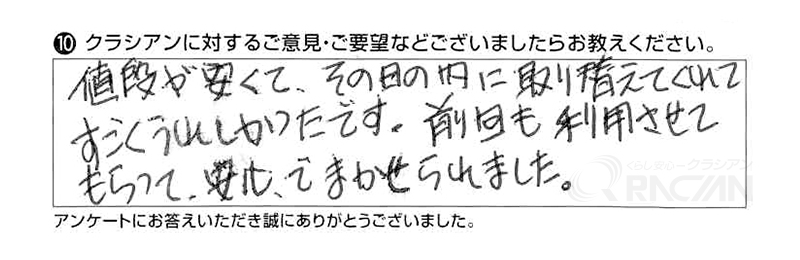 ⑩ クラシアンに対するご意見・ご要望などございましたらお教えください。
値段が安くて、その日の内に取り替えてくれて
すごくうれしかったです。前回も利用させて
もらって、安心、でまかせられました。
くらし安心クラシアン
QRACIAN
アンケートにお答えいただき誠にありがとうございました。